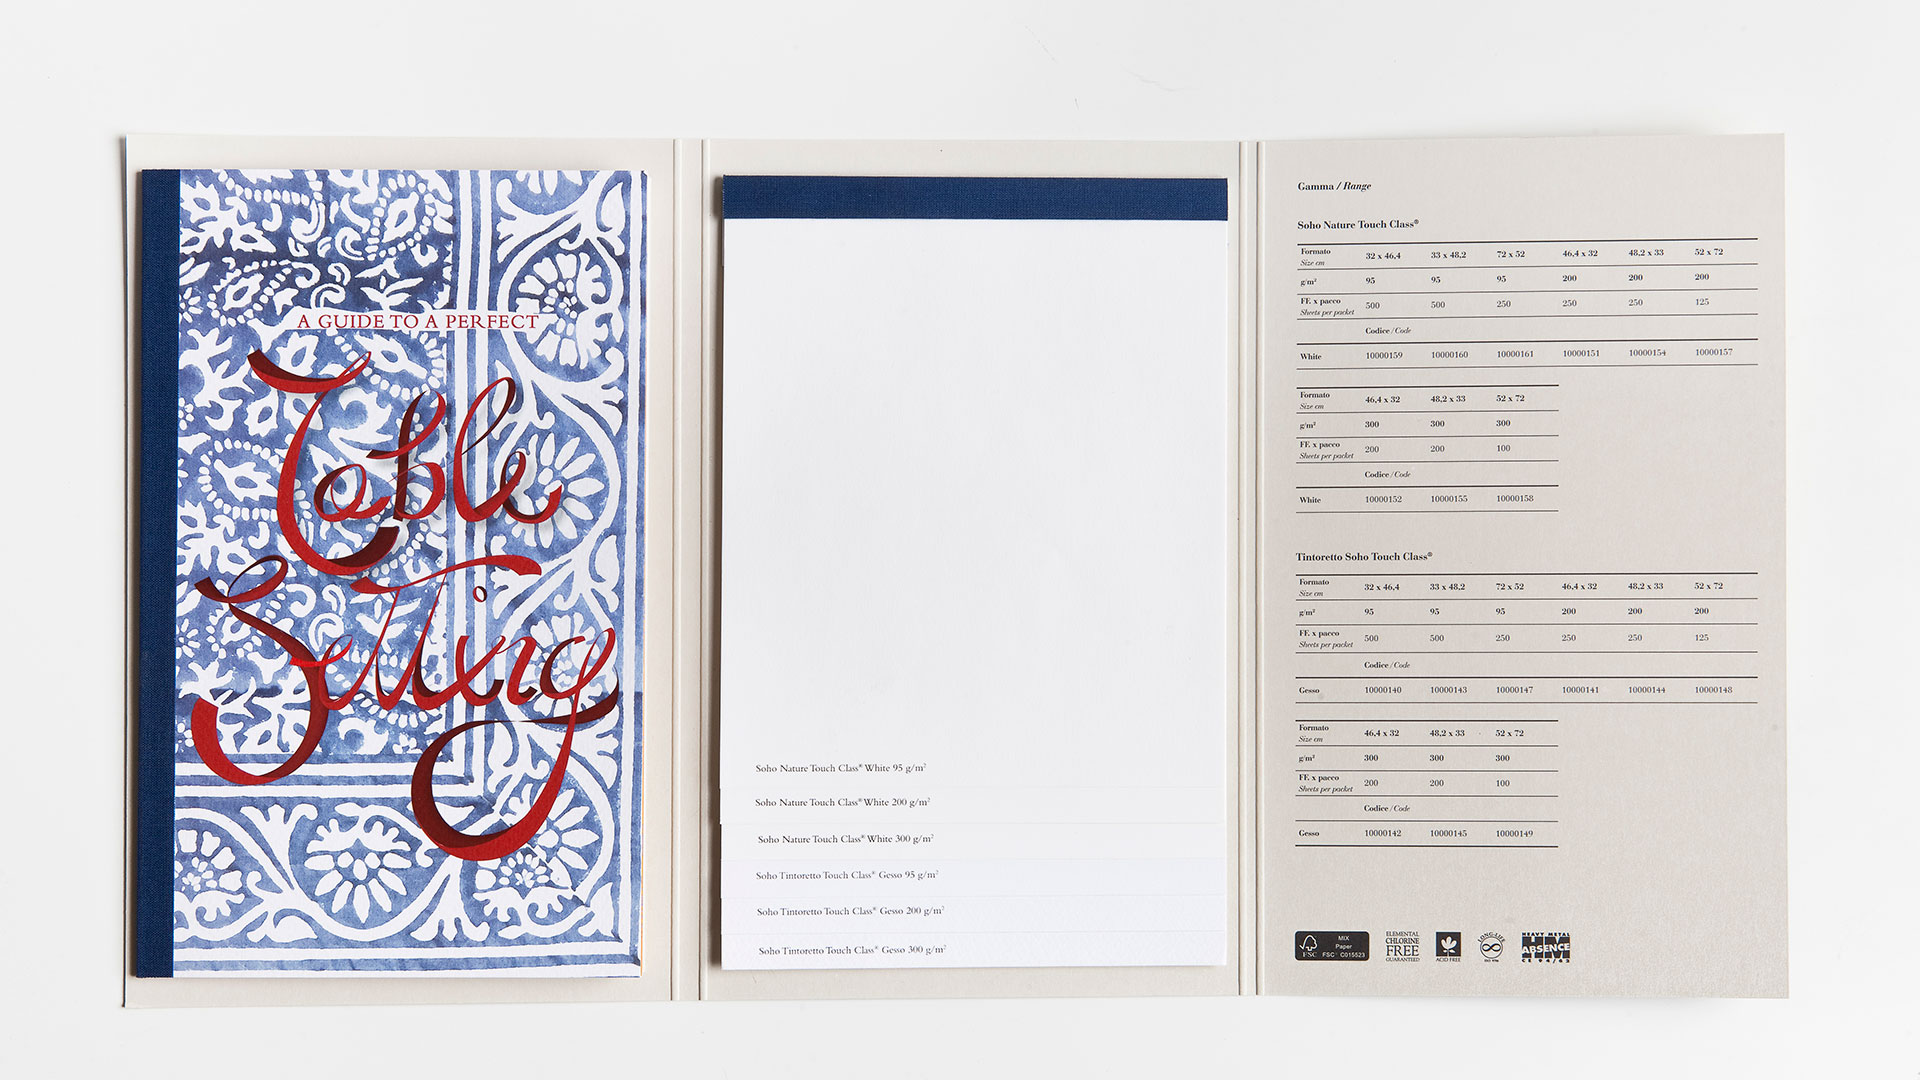 A GUIDE TO A PERFECT
Table
Setting
Soho Nature Touch Class® White 95 g/m²
Soho Nature Touch Class® White 200 g/m²
Soho Nature Touch Class® White 300 g/m²
Soho Tintoretto Touch Class® Gesso 95 g/m²
Soho Tintoretto Touch Class® Gesso 200 g/m²
Soho Tintoretto Touch Class® Gesso 300 g/m²
Gamma / Range
Soho Nature Touch Class®
Formato
Size cm 32 x 46,4 33 x 48,2 72 x 52 46,4 x 32 48,2 x 33 52 x 72
g/m² 95 95 95 200 200 200
FF. x pacco
Sheets per packet 500 500 250 250 250 125
Codice / Code
White 10000159 10000160 10000161 10000151 10000154 10000157
Formato
Size cm 46,4 x 32 48,2 x 33 52 x 72
g/m² 300 300 300
FF. x pacco
Sheets per packet 200 200 100
Codice / Code
White 10000152 10000155 10000158
Tintoretto Soho Touch Class®
Formato
Size cm 32 x 46,4 33 x 48,2 72 x 52 46,4 x 32 48,2 x 33 52 x 72
g/m² 95 95 95 200 200 200
FF. x pacco
Sheets per packet 500 500 250 250 250 125
Codice / Code
Gesso 10000140 10000143 10000147 10000141 10000144 10000148
Formato
Size cm 46,4 x 32 48,2 x 33 52 x 72
g/m² 300 300 300
FF. x pacco
Sheets per packet 200 200 100
Codice / Code
Gesso 10000142 10000145 10000149
MIX
Paper
FSC FSC® C015523
ELEMENTAL
CHLORINE
FREE
GUARANTEED
ACID FREE
LONG-LIFE
ISO 9706
HEAVY METAL
HM
ABSENCE
CE 94/62